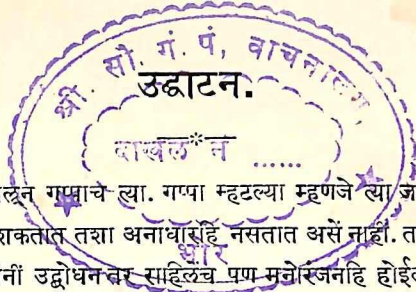 श्री. सौ. गं. पं, वाचनालय,
उद्घाटन.
दाखल * नं ......
लून गप्पाचे ल्या. गप्पा म्हटल्या म्हणजे त्या ज
शकतात तशा अनाधारहि नसतात असें नाहीं. त
नीं उद्बोधन तर साहिलच पण मनोरंजनहि होईल